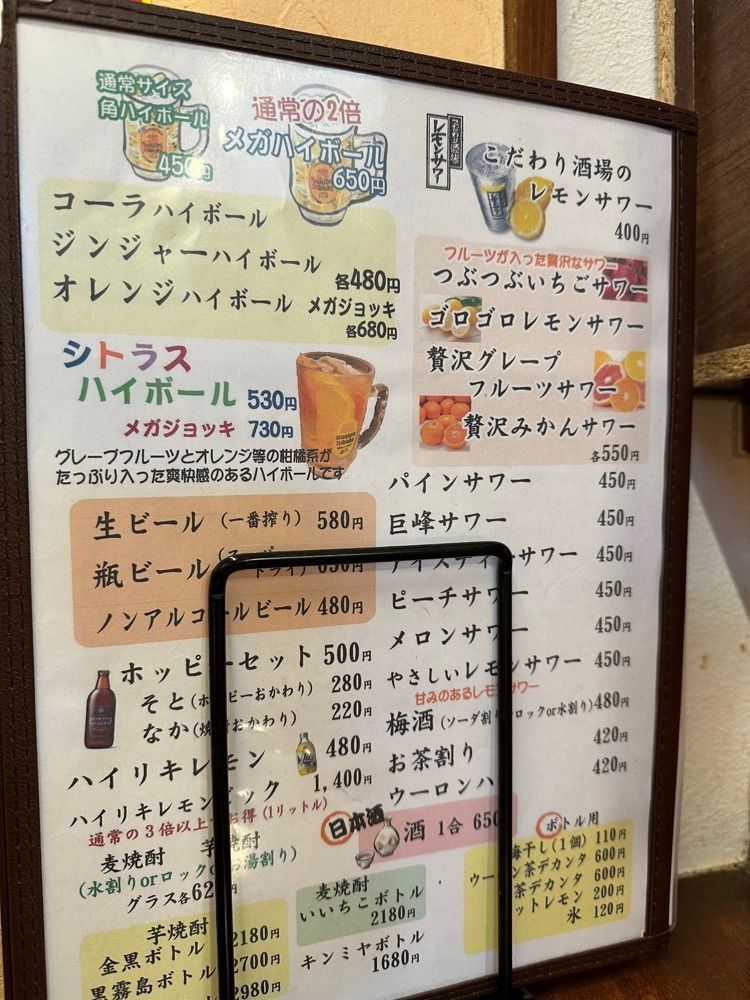 通常サイズ
角ハイボール
450円
通常の2倍
メガハイボール
650円
コーラハイボール
ジンジャーハイボール
各480円
オレンジハイボール メガジョッキ
各680円
シトラス
ハイボール 530円
メガジョッキ 730円
グレープフルーツとオレンジ等の柑橘系が
たっぷり入った爽快感のあるハイボールです
生ビール（一番搾り） 580円
瓶ビール
ノンアルコールビール 480円
ホッピーセット 500円
そと（ホッピーおかわり） 280円
なか（焼酎おかわり） 220円
ハイリキレモン 480円
ハイリキレモンビック 1,400円
通常の3倍以上 お得（1リットル）
麦焼酎 芋焼酎
（水割りorロックorお湯割り）
グラス各62
芋焼酎
金黒ボトル 2180円
黒霧島ボトル 2700円
2980円
こだわり酒場の
レモンサワー
こだわり酒場の
レモンサワー
400円
フルーツが入った贅沢なサワー
つぶつぶいちごサワー
ゴロゴロレモンサワー
贅沢グレープ
フルーツサワー
贅沢みかんサワー
各550円
パインサワー 450円
巨峰サワー 450円
アイスティーサワー 450円
ピーチサワー 450円
メロンサワー 450円
やさしいレモンサワー 450円
甘みのあるレモンサワー
梅酒（ソーダ割りorロックor水割り） 480円
お茶割り 420円
ウーロンハイ 420円
日本酒
酒 1合 650
麦焼酎
いいちこボトル
2180円
キンミヤボトル
1680円
ボトル用
梅干し（1個） 110円
ウーロン茶デカンタ 600円
茶デカンタ 600円
カットレモン 200円
氷 120円